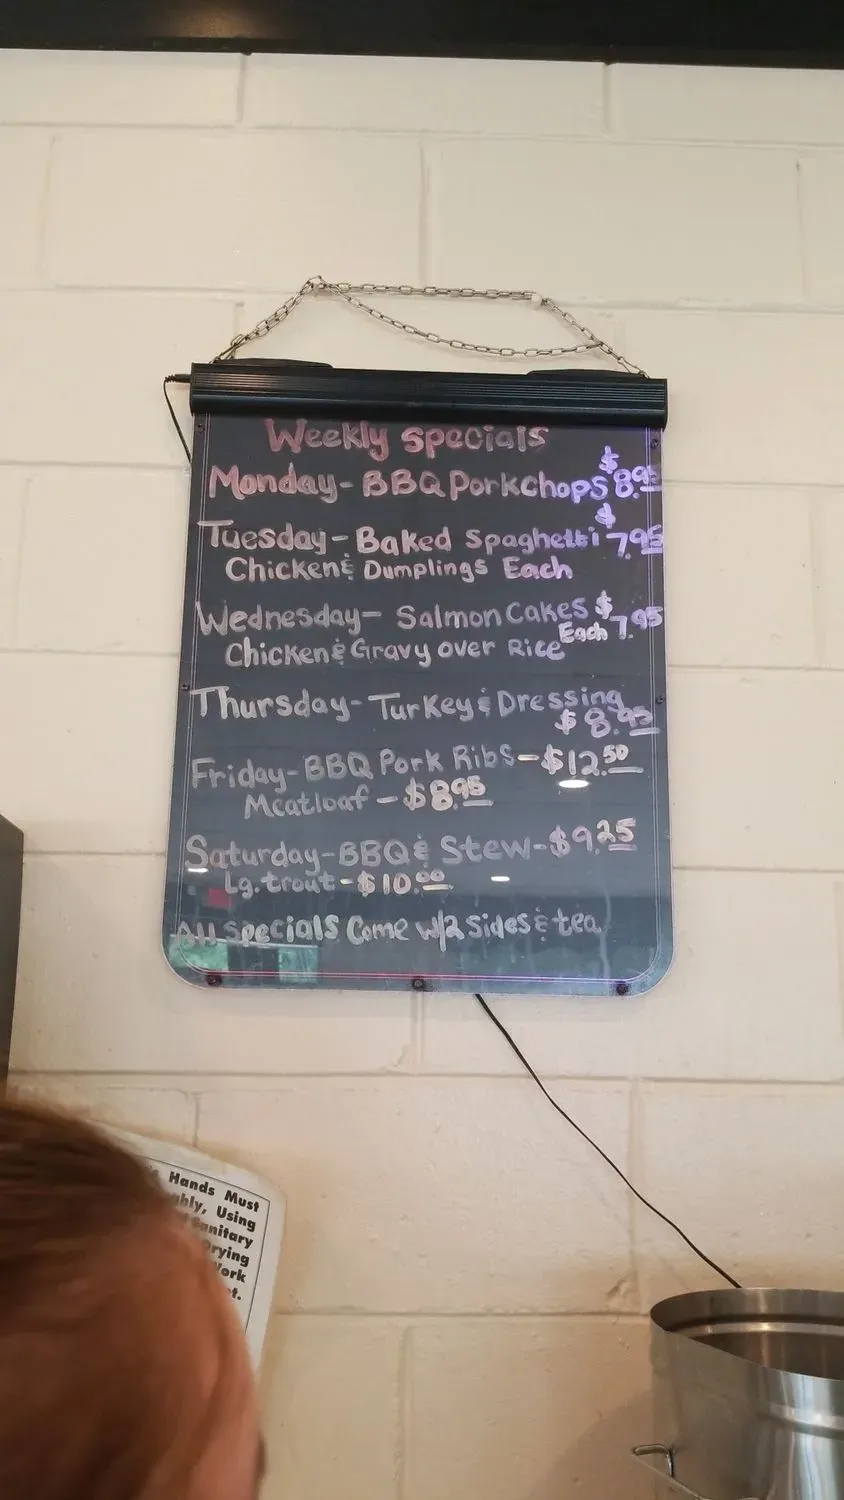 Weekly specials
Monday- BBQ Porkchops $8.95
Tuesday- Baked Spaghetti $7.95
Chicken & Dumplings Each
Wednesday- Salmon Cakes $7.95
Chicken & Gravy over Rice Each
Thursday- Turkey & Dressing
$8.95
Friday-BBQ Pork Ribs-$12.50
Meatloaf-$8.95
Saturday-BBQ & Stew-$9.25
Lg. trout-$10.00
All specials Come w/2 Sides & tea
Hands Must
Using
Sanitary
Drying
Work